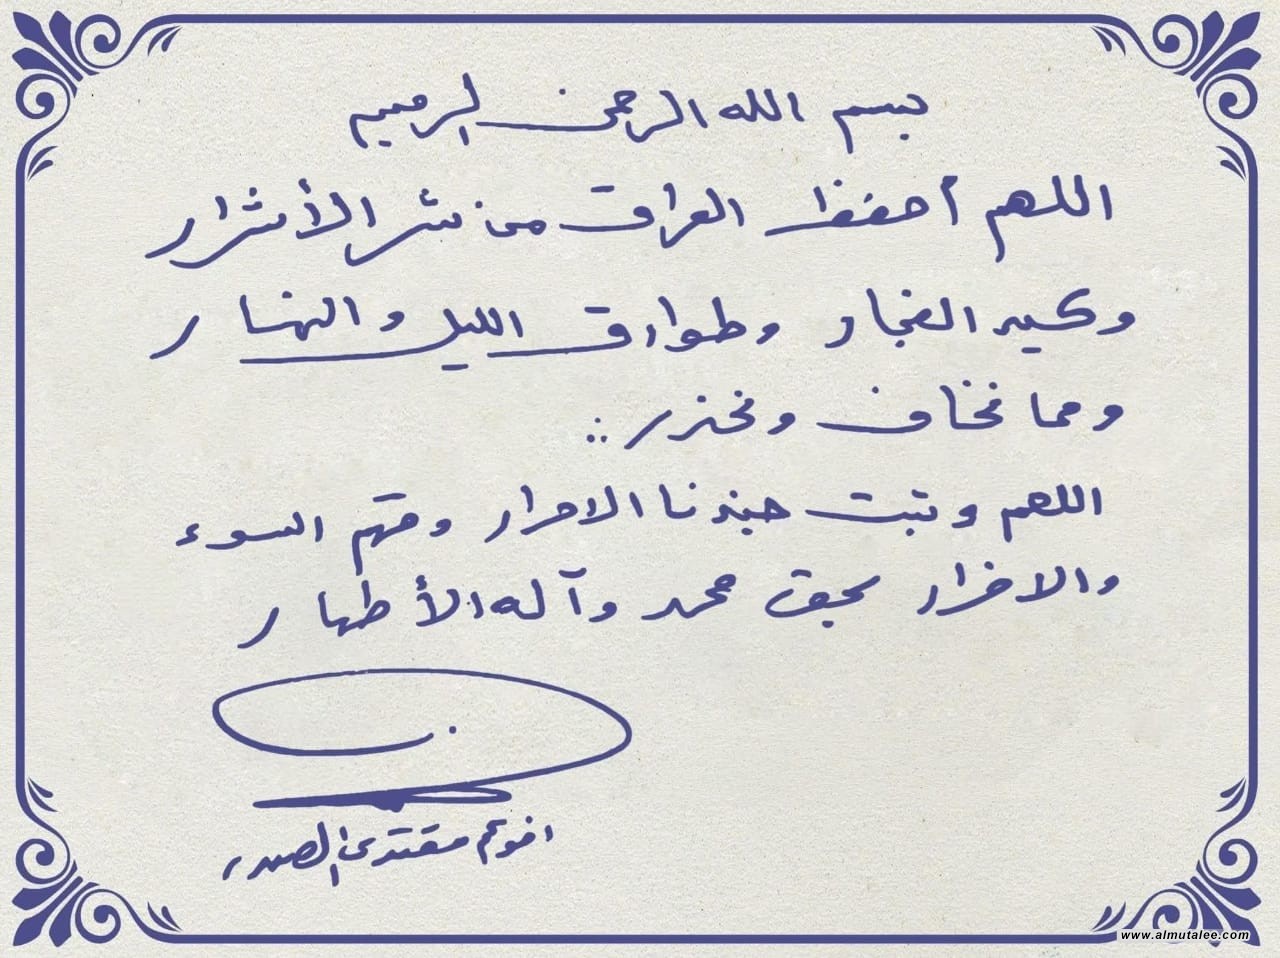 بسم الله الرحمن الرحيم
اللهم أحفظ العراق من شر الأشرار
وكيد الفجار وطوارق الليل والنهار
ومما نخاف ونحذر..
اللهم وثبت جندنا الاحرار وقهم السوء
والاضرار بحق محمد وآله الأطهار
اخوكم مقتدى الصدر
www.almutalee.com